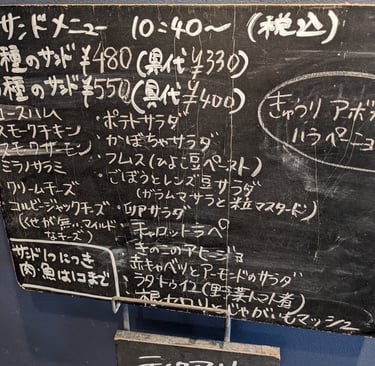 サンドメニュー 10:40〜 (税込)
種のサンド ¥480 (具代 ¥330)
種のサンド ¥550 (具代 ¥400)
ースハム
スモークチキン
スモークサーモン
ミラノサラミ
クリームチーズ
コルビージャックチーズ
(くせが無いマイルドなチーズ)
サンド1つにつき
肉・魚は1コまで
・ポテトサラダ
・かぼちゃサラダ
・フムス(ひよこ豆ペースト)
・ごぼうとレンズ豆サラダ
(ガラムマサラと粒マスタード)
サラダ
・キャロットラペ
・きのこのアヒージョ
・赤キャベツとアーモンドのサラダ
・ラタトゥイユ(野菜トマト煮)
根セロリとじゃがいもマッシュ
きゅうり アボ
ハラペーニョ